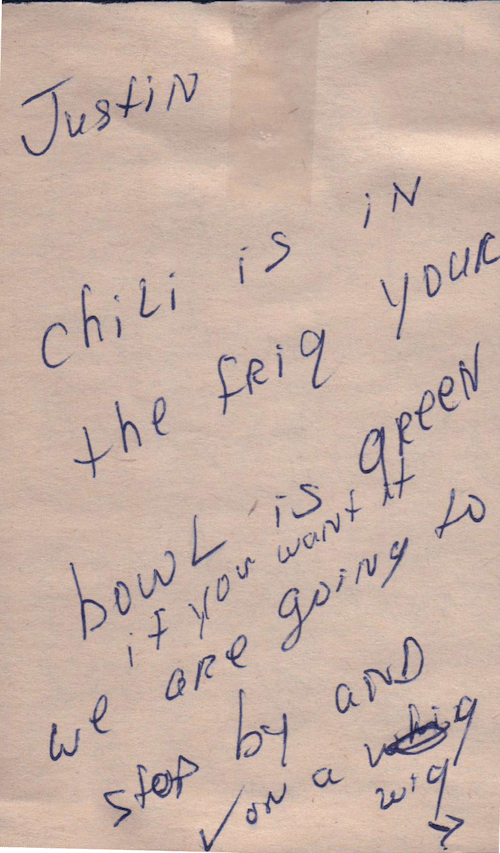 Justin
chili is in
the frig your
bowl is green
if you want it
we are going to
stop by and
✓ on a
wig →